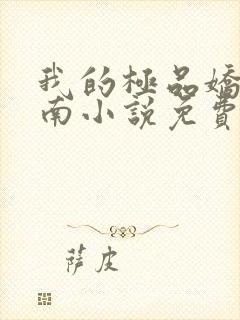 我的極品嬌
南小說免費
萨皮